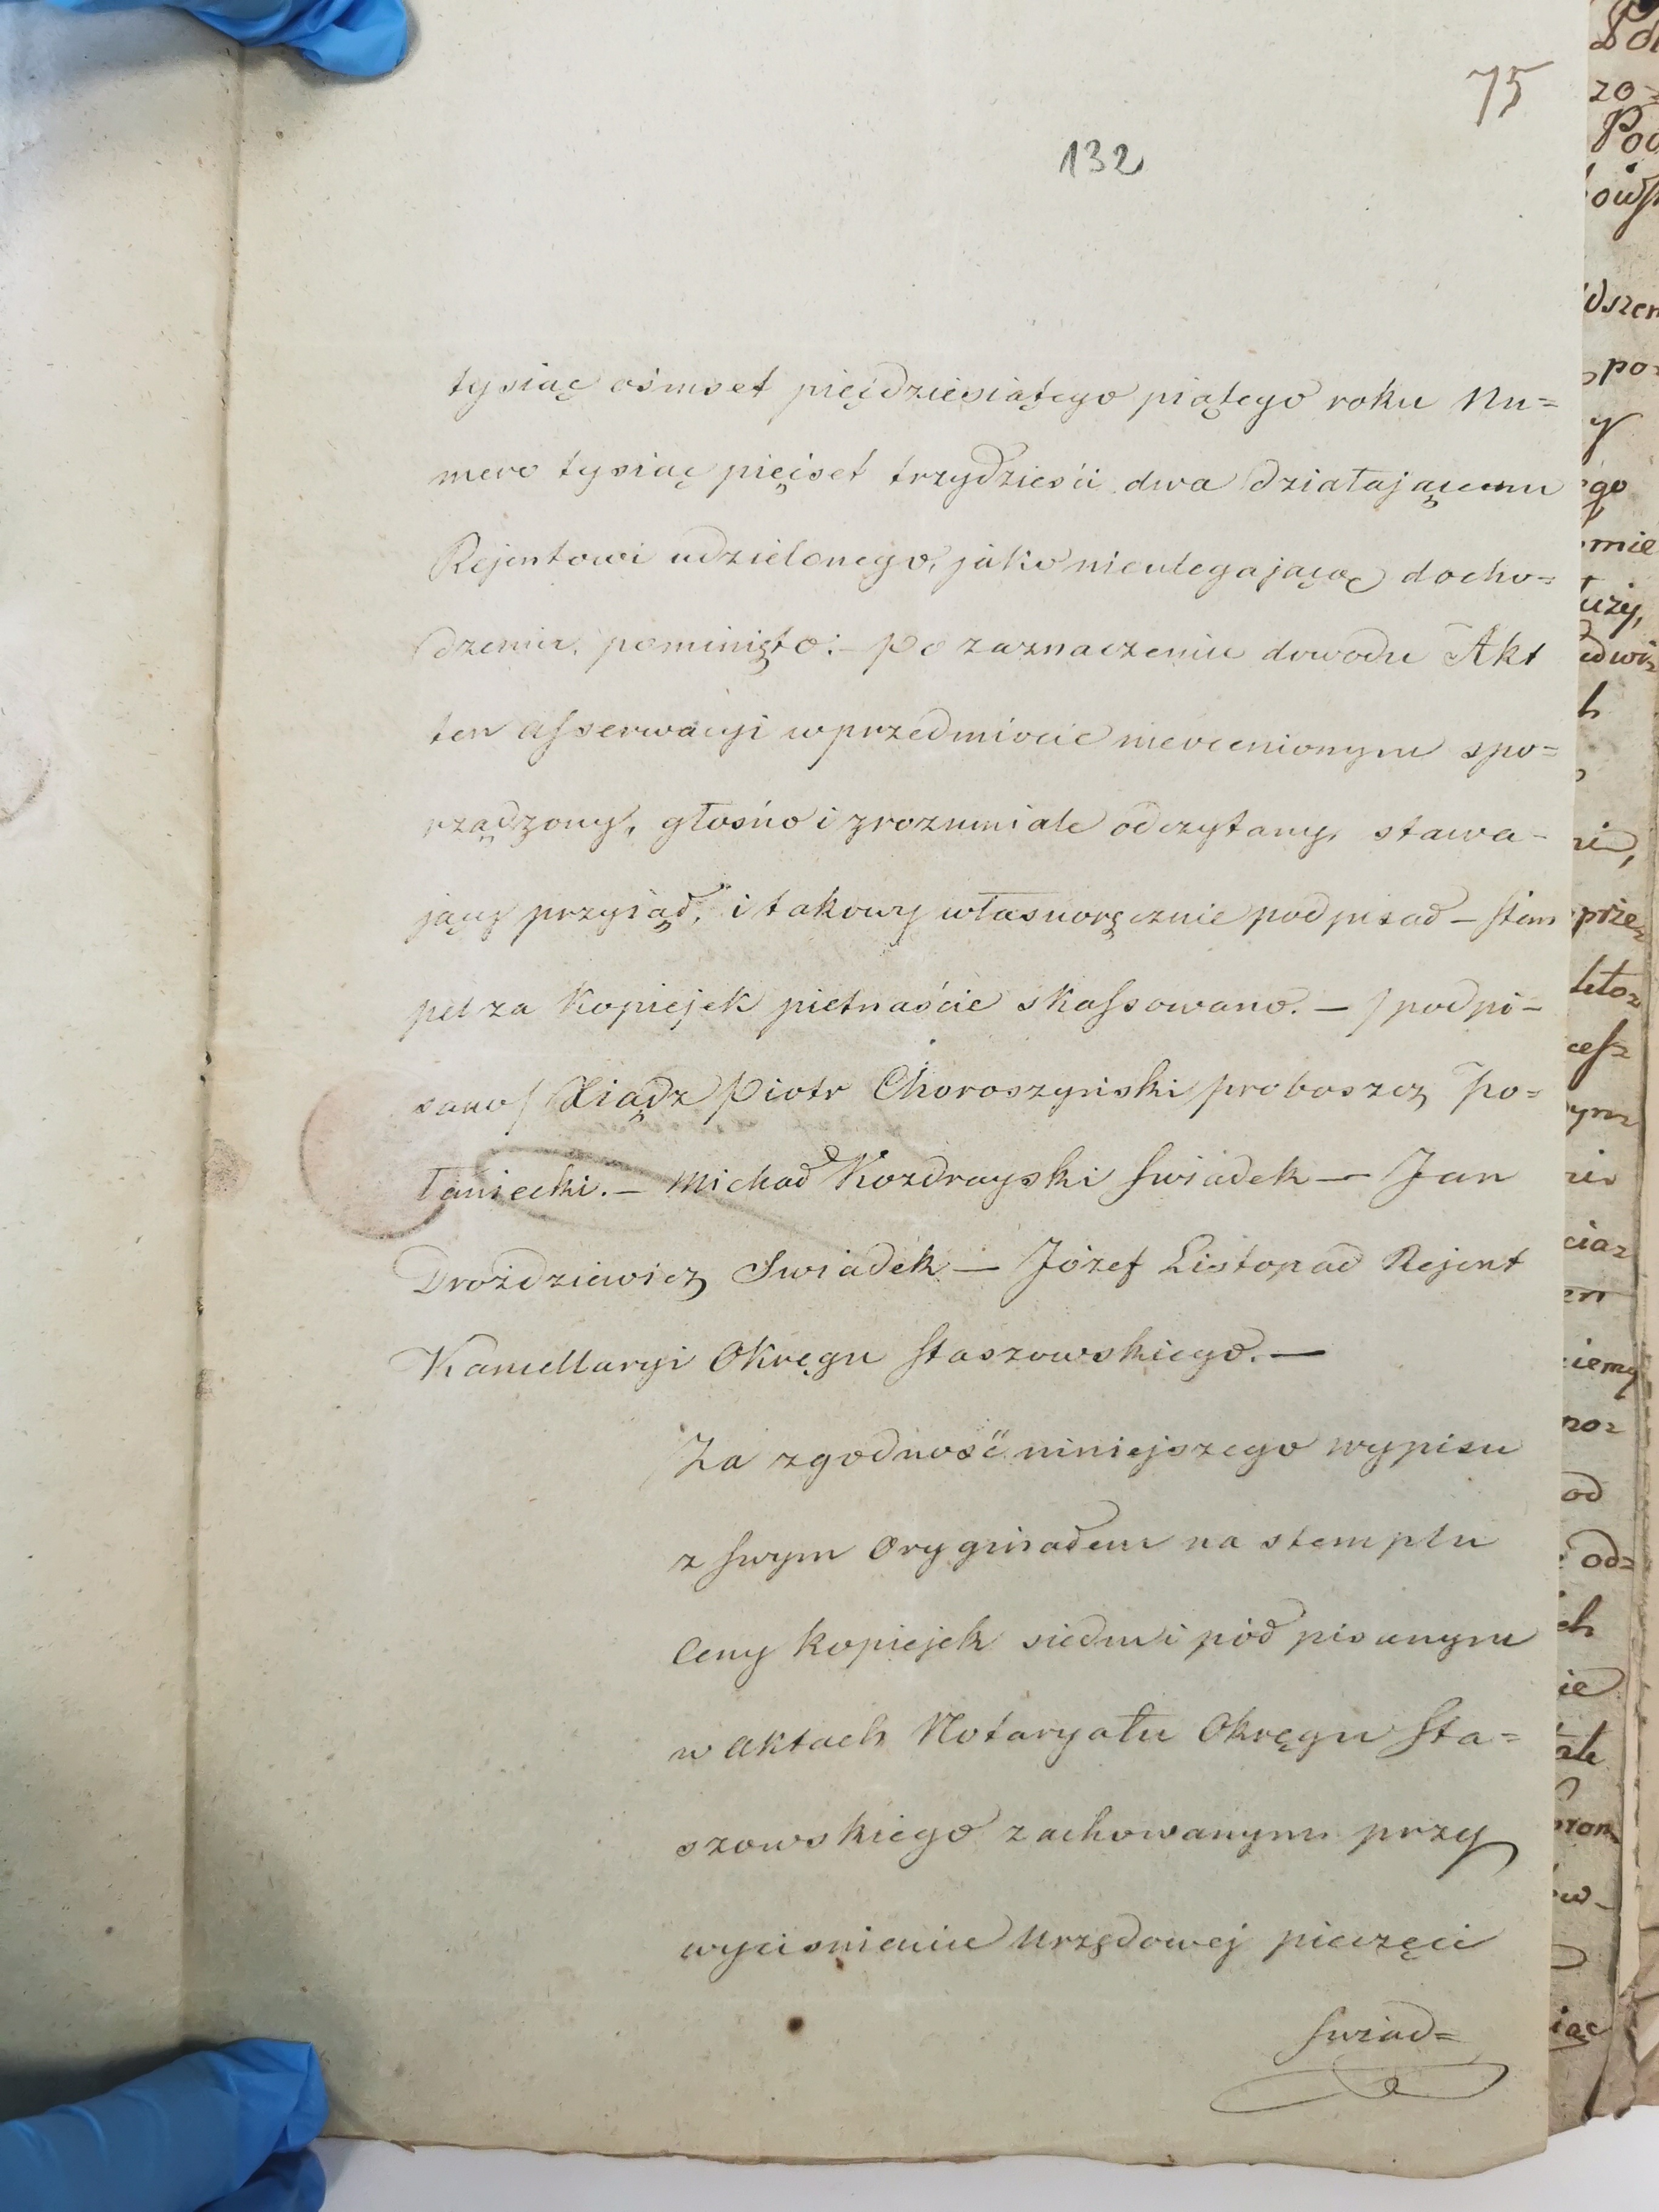 75
132
tysiąc ośmset pięćdziesiątego piątego roku Nu=
mero tysiąc pięćset trzydzieści dwa działającemu
Rejentowi udzielonego, jako nieulegające docho=
dzeniu, pominięto: – Po zaznaczeniu dowodu Akt
ten Asserwacyi w przedmiocie nieocenionym spo=
rządzony, głośno i zrozumiale odczytany, stawa–
jący przyiął, i takowy własnoręcznie podpisał – Stem
pel za Kopiejek pietnaście skassowano. – / podpi–
sano / Xiądz Piotr Choroszyński proboszcz Po=
łaniecki. – Michał Kozdrayski Swiadek – Jan
Drożdziewicz Swiadek – Józef Listopad Rejent
Kancellaryi Okręgu Staszowskiego. –
Za zgodność niniejszego wypisu
z swym Oryginałem na stemplu
Ceny Kopiejek siedm i pół pisanym
w Aktach Notaryatu Okręgu Sta=
szowskiego zachowanym przy
wyciśnieniu Urzędowej pieczęci
Swiad=